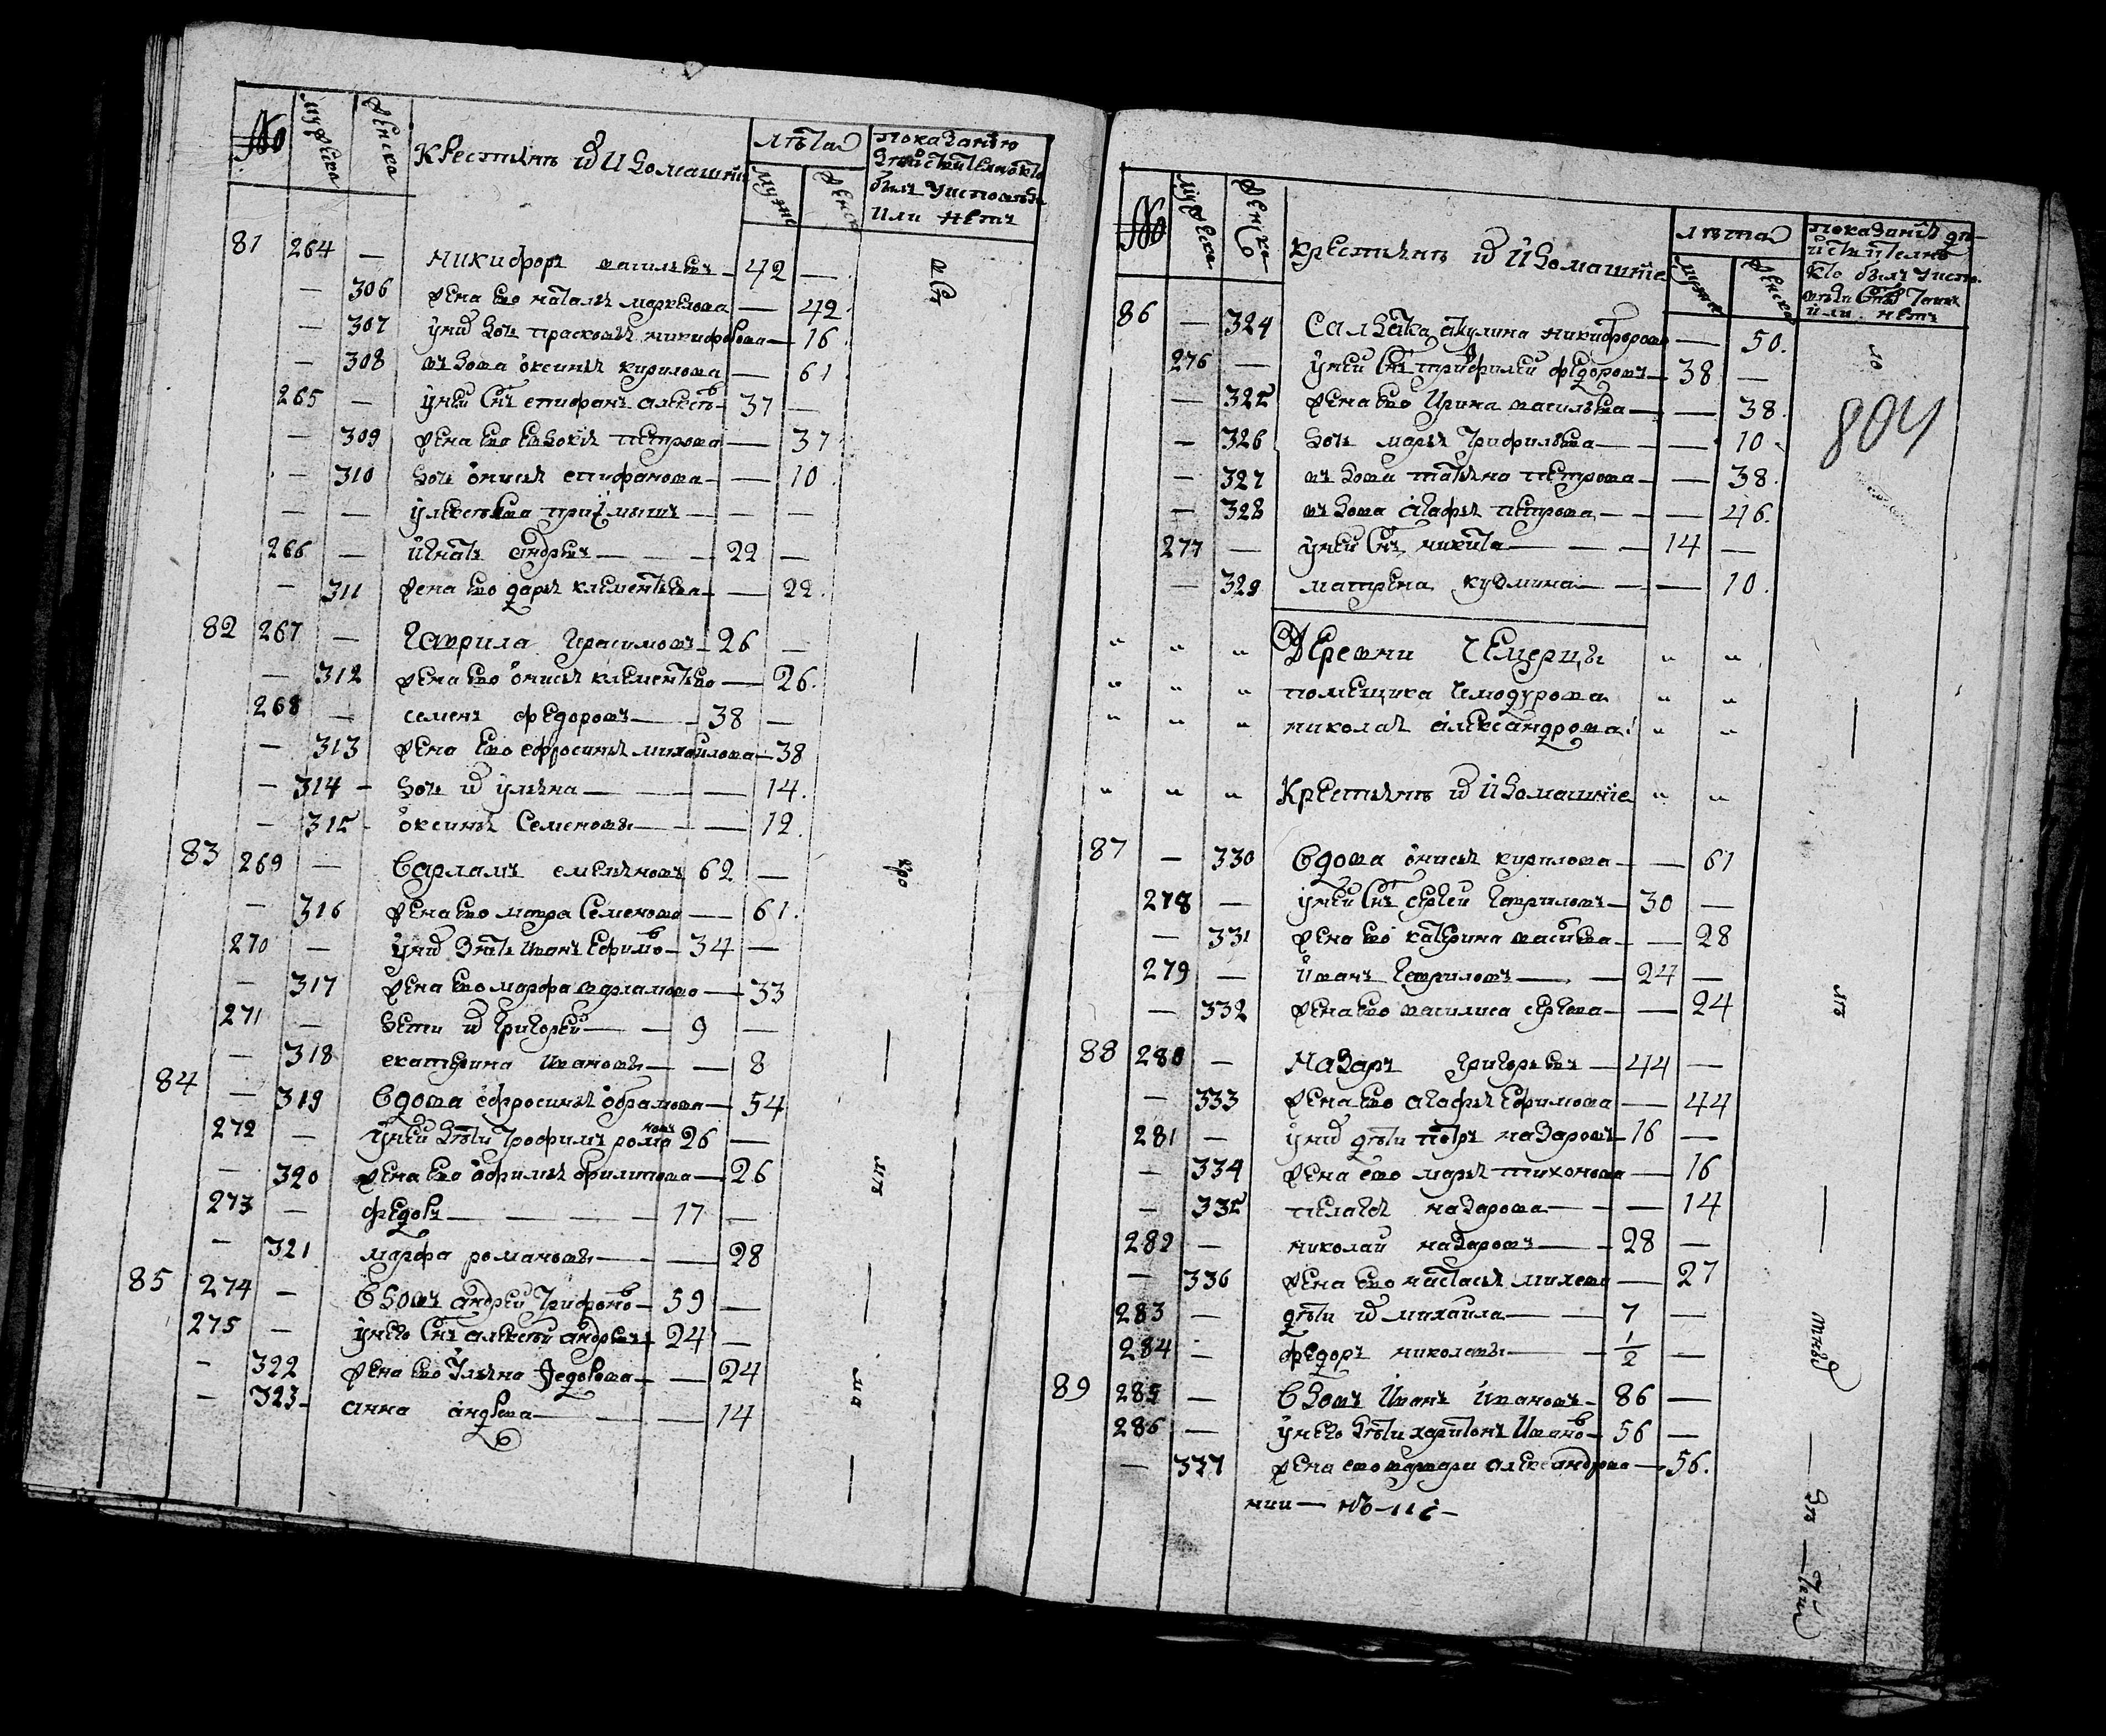 № мужеска женска крестьяне и их домашнии лета мужеск женск показание
действително кто
был у исповеди
или нет
81 264 — никифоръ васильевъ — 42 —
— 306 жена ево наталья маркелова — 42
— 307 у них дочь прасковья никифорова — 16
— 308 вдова оксинья кирилова — 61
265 — у ней сынъ епифанъ алексѣвъ — 37 —
— 309 жена ево евдокия петрова — 37
— 310 дочь онисья епифанова — — 10
— — у алексѣева приимышъ — — —
266 — игнатъ андревъ — — — 22 —
— 311 жена ево дарья клементьева — — 22.
82 267 — гаврила герасимовъ — 26 —
— 312 жена ево онисья клементьева — 26.
268 — семенъ федоровъ — — 38 —
— 313 жена ево ефросинья михайлова — 38
— 314 — дочь их ульяна — — — 14.
— 315 — оксинья семеновы — — — 12.
83 269 — варламъ емельяновъ 62 —
— 316 жена ево мавра семенова — 61.
270 — у них зять иванъ ефимовъ — 34 —
— 317 жена ево марфа варламова — 33
271 — дети их григорей — — 9 —
— 318 екатерина ивановы — — 8
84 — 319 вдова ефросинья обрамова — 54
272 — у ней дѣти трофимъ романовъ 26 —
— 320 жена ево офимья филипова — 26
273 — федоръ — — — — 17 —
— 321 марфа романовы — — 28
85 274 — вдовъ андрей трифоновъ — 59 —
275 — у него сынъ алексѣй андревъ 24 —
— 322 жена ево ульяна федорова — — 24
— 323 — анна андрева — — — 14
№ мужеска женска крестьяне и их домашние лета мужеск женска показание дѣ-
йствително
кто былъ у испо-
веди
или нетъ
86 — 324 салдатка акулина никифорова — 50.
276 — у ней сынъ трифилей федоровъ — 38 —
— 325 жена ево ирина васильева — — 38.
— 326 дочь марья трифильева — — 10
— 327 вдова татьяна петрова — — 38.
— 328 вдова агафья петрова — — — 46.
277 — у ней сынъ никита — — — 14 —
— 329 матрена кузмина — — — 10.
804
" " " Деревни чемерцы " "
" " " помещика чемодурова " "
" " " николая александрова " "
" " " Крестьяне и их домашние " "
87 — 330 вдова онисья кирилова — — 61
278 — у ней сынъ сергей гавриловъ — 30 —
— 331 жена ево катерина васильева — — 28
279 — иванъ гавриловъ — — — 24 —
— 332 жена ево василиса сергева — — 24
88 280 — назаръ григорьевъ — 44 —
— 333 жена ево агафья ефимова — 44
281 — у них дѣти петръ назаровъ — 16 —
— 334 жена ево марья тихонова — 16
— 335 пелагея назарова — — — 14
282 — николай назаровъ — — 28 —
— 336 жена ево настасья михева — 27
283 — дѣти их михаила — — 7 —
284 — федоръ николаевы — — 1/2 —
89 285 — вдовъ иванъ ивановъ — 86 —
286 — у него дѣти харитонъ ивановъ — 56 —
— 337 жена ево варвара александрова — 56.